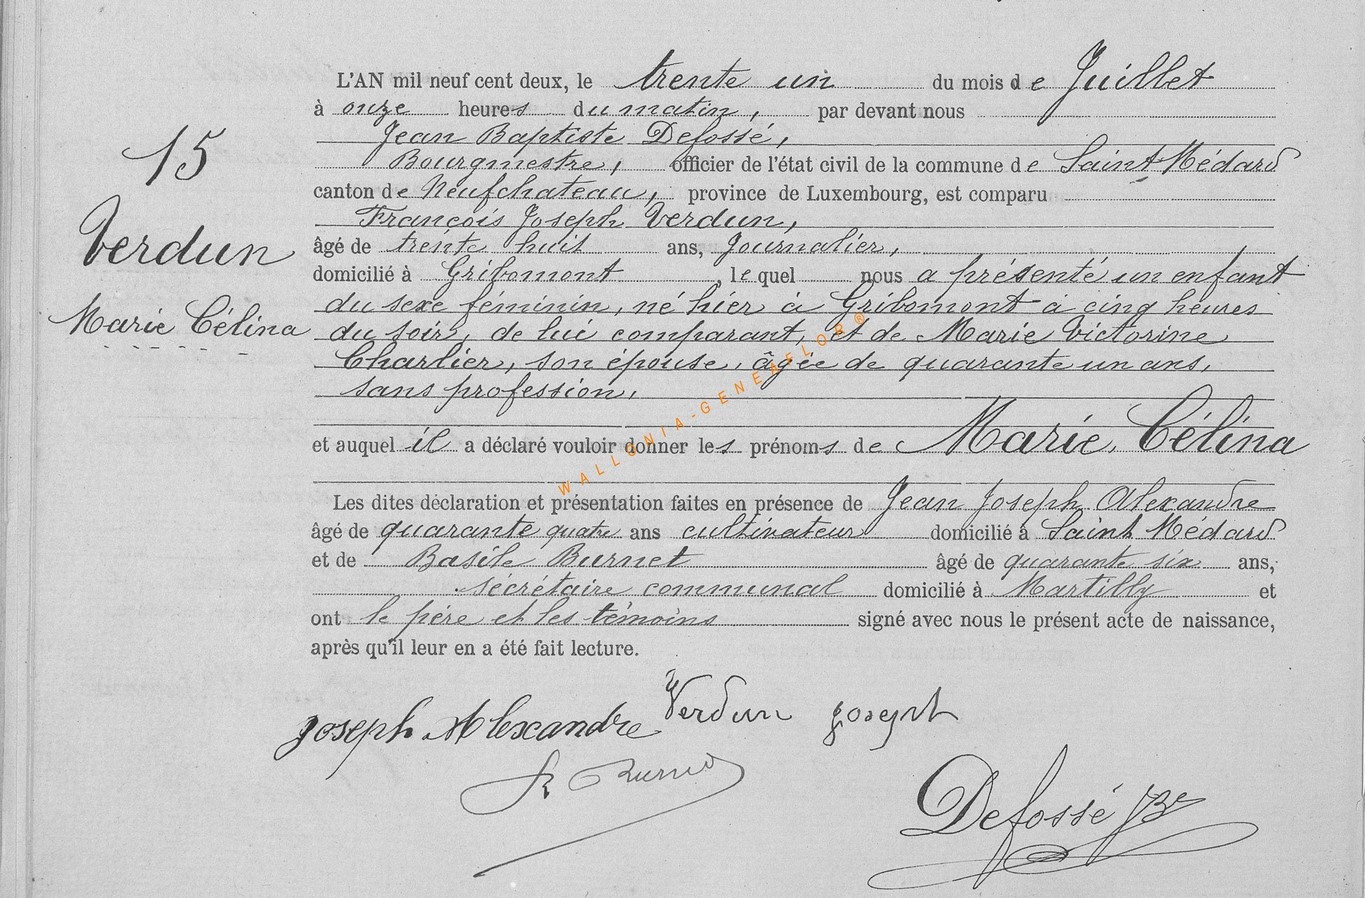 15
Verdun
Marie Célina
L'AN mil neuf cent deux, le trente un du mois de Juillet
à onze heures du matin, par devant nous
Jean Baptiste Defossé,
Bourgmestre, officier de l'état civil de la commune de Saint-Médard
canton de Neufchateau, province de Luxembourg, est comparu
François Joseph Verdun,
âgé de trente huit ans, Journalier,
domicilié à Gribomont, lequel nous a présenté un enfant
du sexe féminin, né hier à Gribomont à cinq heures
du soir, de lui comparant, et de Marie Victorine
Charlier, son épouse, âgée de quarante un ans,
sans profession,
et auquel il a déclaré vouloir donner les prénoms de Marie, Célina
Les dites déclaration et présentation faites en présence de Jean Joseph Alexandre
âgé de quarante quatre ans cultivateur domicilié à Saint Médard
et de Basile Burnet âgé de quarante six ans,
sécrétaire communal domicilié à Martilly et
ont le père et les témoins signé avec nous le présent acte de naissance,
après qu'il leur en a été fait lecture.
Joseph Alexandre Verdun Joseph
Burnet
Defossé JBte
WALLONIA-GENEAFLOR®